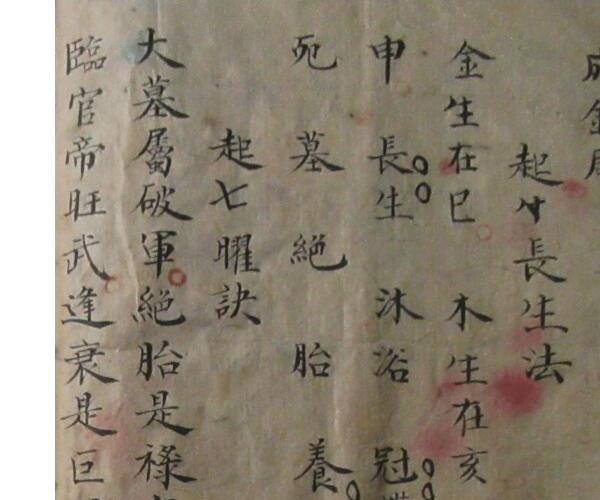 成金局
起寸長生法
金生在巳 木生在亥
申 長生 沐浴 冠
死 墓 絕 胎 養
起七曜訣
大墓屬破軍絕胎是祿
臨官帝旺武逢衰是巨